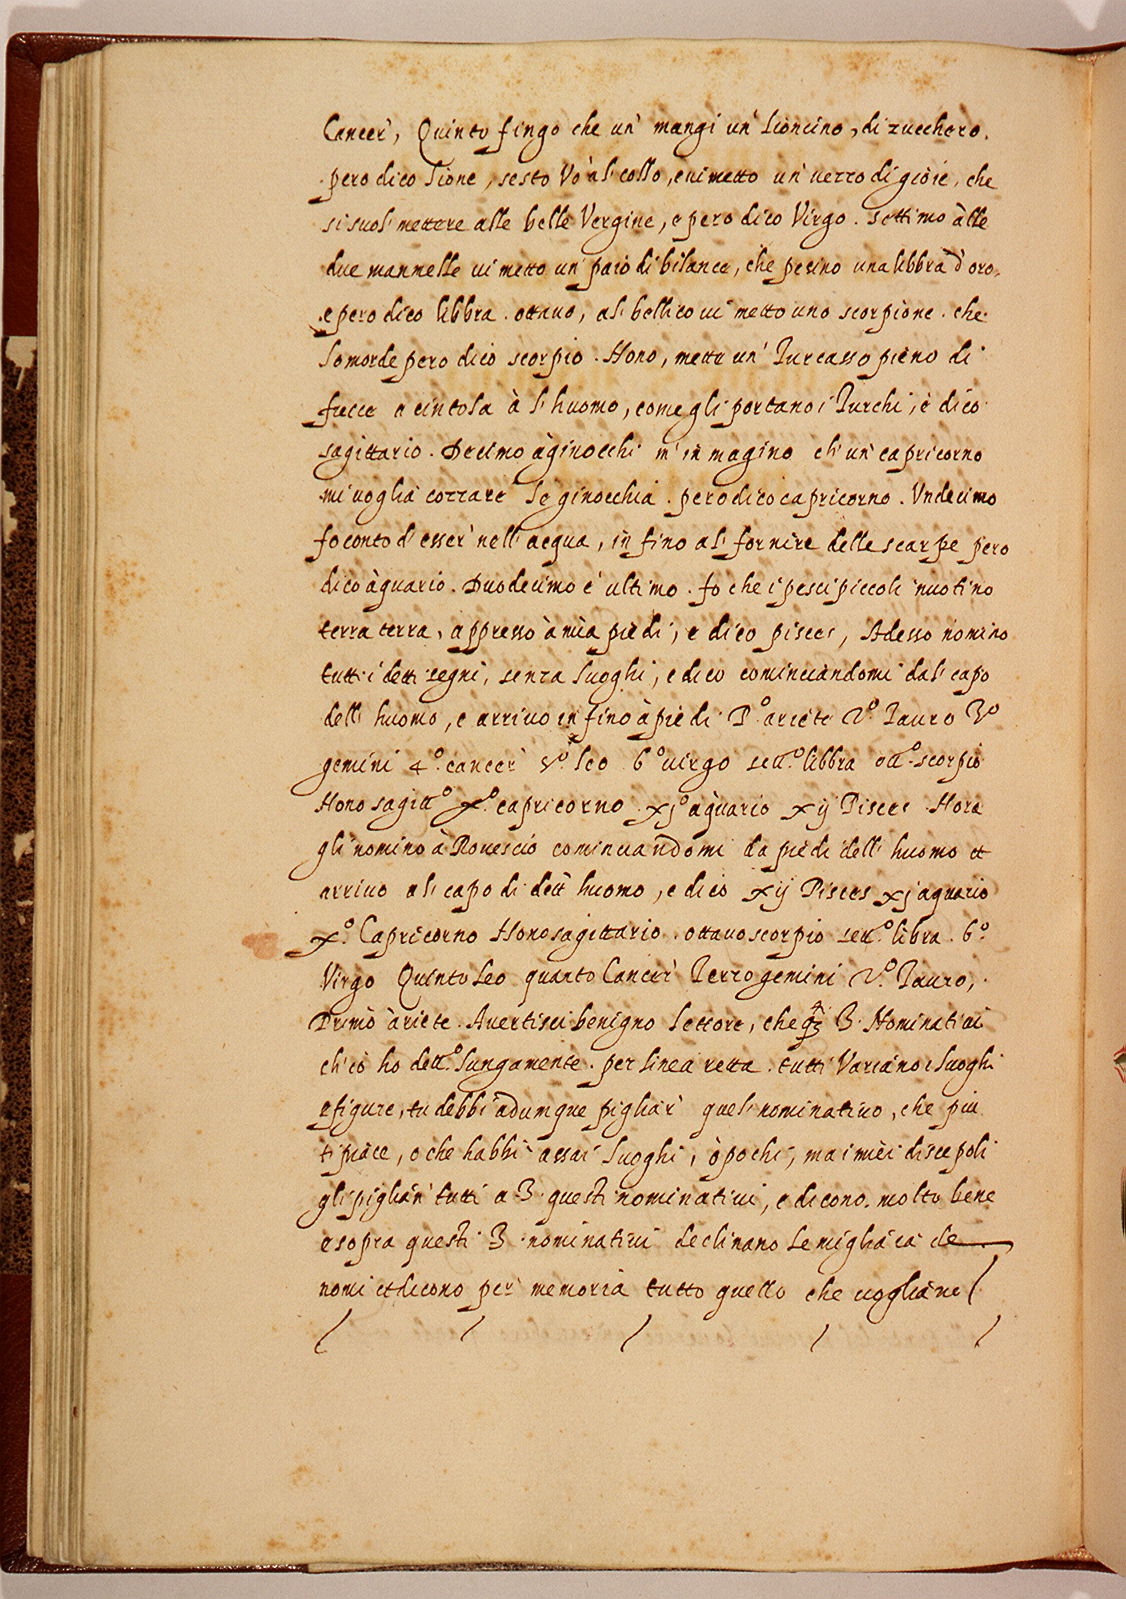 Cancer, Quinto fingo che un mangi un Lioncino, di zucchero.
però dico Lione, sesto Vò al collo, e vi metto un vezzo di gioie, che
si suol mettere alle belle Vergine, e pero dico Virgo. settimo àlle
due mannelle vi metto un paio di bilance, che pesino una libbra d'oro,
e pero dico libbra. ottavo, al bellico vi metto uno scorpione. che
lo morde pero dico scorpio. Nono, metto un Turcasso pieno di
frecce a cintola à l'huomo, come gli portano i Turchi, è dico
sagittario. Decimo à ginocchi m'inmagino ch'un capricorno
mi voglia cozzare le ginocchia. pero dico capricorno. Undecimo
fo conto d'esser nell'acqua, in fino al fornire delle scarpe pero
dico àquario. Duodecimo e ultimo. fo che i pesci piccoli nuotino
terra terra, appresso à mia piedi, e dico pisces, Adesso nomino
tutti i detti segni, senza luoghi, e dico cominciandomi dal capo
dell huomo, e arrivo in fino à piedi P.º ariete 2.º Tauro 3º
gemini 4.º cancer V.º leo 6º virgo sett.º libbra ott.º scorpio
Nono sagitt.º X.º capricorno XJº aquario xij Pisces Hora
gli nomino à Rovescio cominciandomi da piedi dell huomo et
arrivo al capo di dett huomo, e dico xij Pisces xj aquario
X.º Capricorno Nono sagittario. ottavo scorpio sett.º libra. 6º
Virgo Quinto Leo quarto Cancer Terzo gemini 2.º Tauro,
Primo àriete. Avertisci benigno Lettore, che 3 Nominativi
ch'io ho dett.º lungamente. per linea retta. tutti Variano i luoghi
e figure, tu debbi adumque pigliar quel nominativo, che piu
ti piace, o che habbi assai luoghi, ò pochi, ma i miei discepoli
gli piglian tutti a 3 questi nominativi, e dicono. molto bene
e sopra questi 3 nominativi declinano le migliaia de
nomi et dicono per memoria tutto quello che vogliano